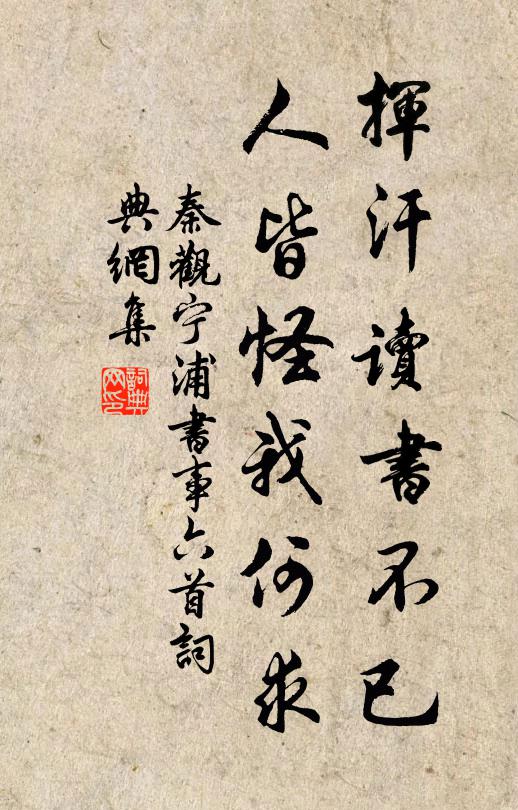 揮汗讀書不已
人皆怪我何求
秦觀寧浦書事六首詞
典網集
詞典
网印